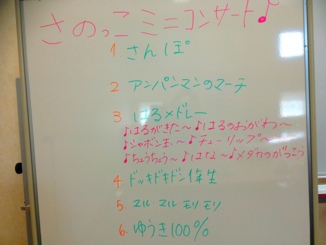 さのっこミニコンサート♪
1 さんぽ
2 アンパンマンのマーチ
3 はるメドレー
♪はるがきた～♪はるのおがわ～
♪シャボン玉～♪チューリップ～
♪ちょうちょう～♪はな～♪メダカのがっこう
4 ドッキドキドン1年生
5 マル マル モリ モリ
6 ゆうき100%